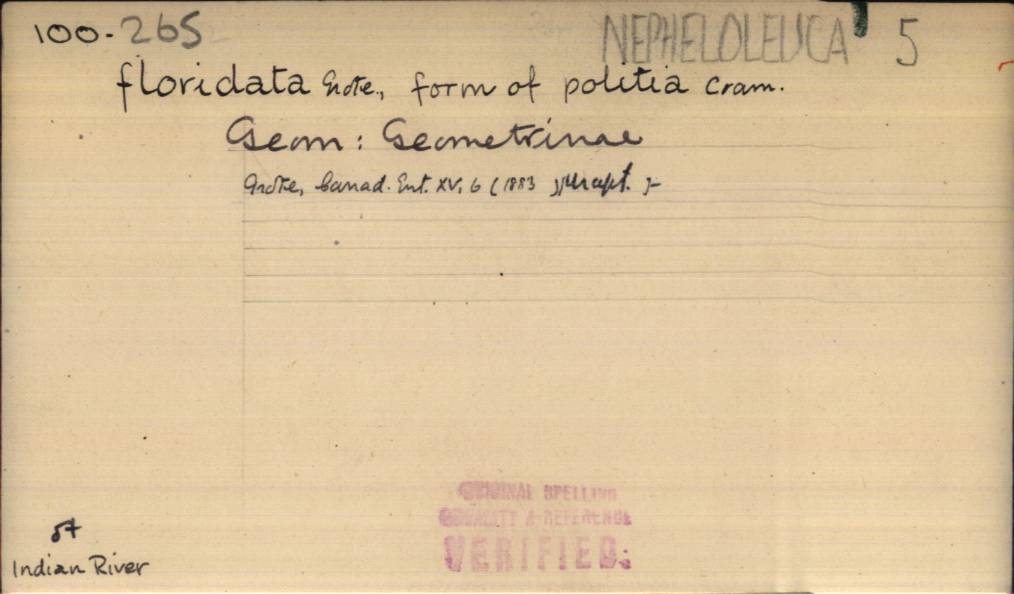 100-265
NEPHELOLEUCA 5
floridata Grote, form of politia Cram.
Geom: Geometrinae
Grote, Canad. Ent. XV, 6 (1883
ORIGINAL SPELLING
LOCALITY & REFERENCE
VERIFIED.
Indian River